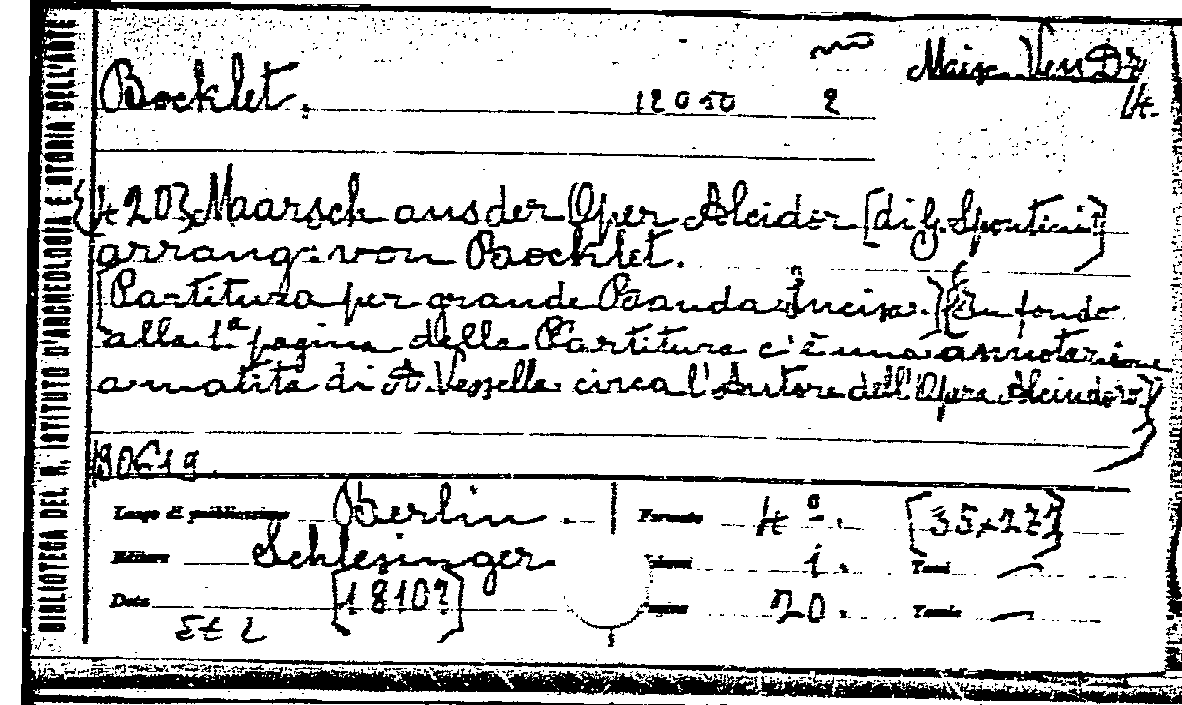 BIBLIOTECA DEL R. ISTITUTO D'ARCHEOLOGIA E STORIA DELL'ARTE
Bocklet.
12050
2
Ven
4203 Maarsch aus der Oper Alcidor [di G. Spontini]
arrang: von Bocklet.
[Partitura per grande Baanda Incisa.] [In fondo
alla 1ª pagina della Partitura c'è una annotazione
a matita di A. Vessella circa l'Autore dell'Opera Alcindoro]
80619.
Luogo di pubblicazione Berlin. Formato 4º. [35x27]
Editore Schlesinger Volumi 1. Tomi —
Data [1810?] Pagine 20. Tavole —